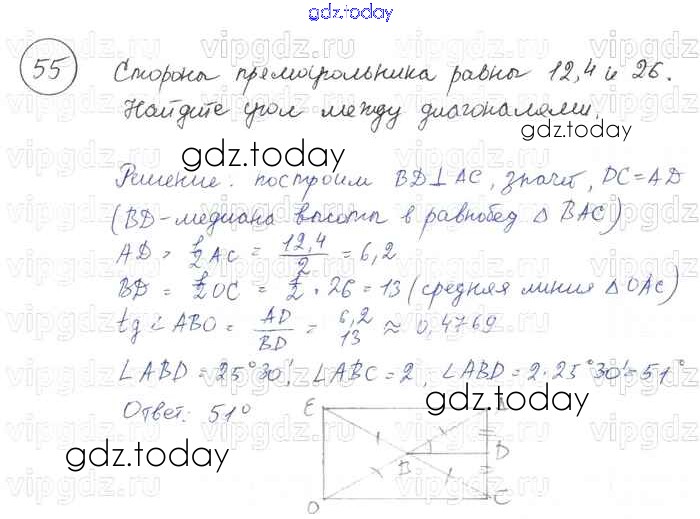 gdz.today
55 Стороны прямоугольника равны 12,4 и 26.
Найдите угол между диагоналями.
gdz.today
gdz.today
Решение: построим BD⊥AC, значит, DC=AD
(BD-медиана высоты в равнобед △ BAC)
AD = 1/2 AC = 12,4/2 = 6,2
BD = 1/2 OC = 1/2 · 26 = 13 (средняя линия △OAC)
tg ∠ABO = AD/BD = 6,2/13 ≈ 0,4769
∠ABD = 25°30', ∠ABC = 2, ∠ABD = 2·25°30' = 51°
gdz.today
Ответ: 51°
gdz.today
E
B D
O C
vipgdz.ru